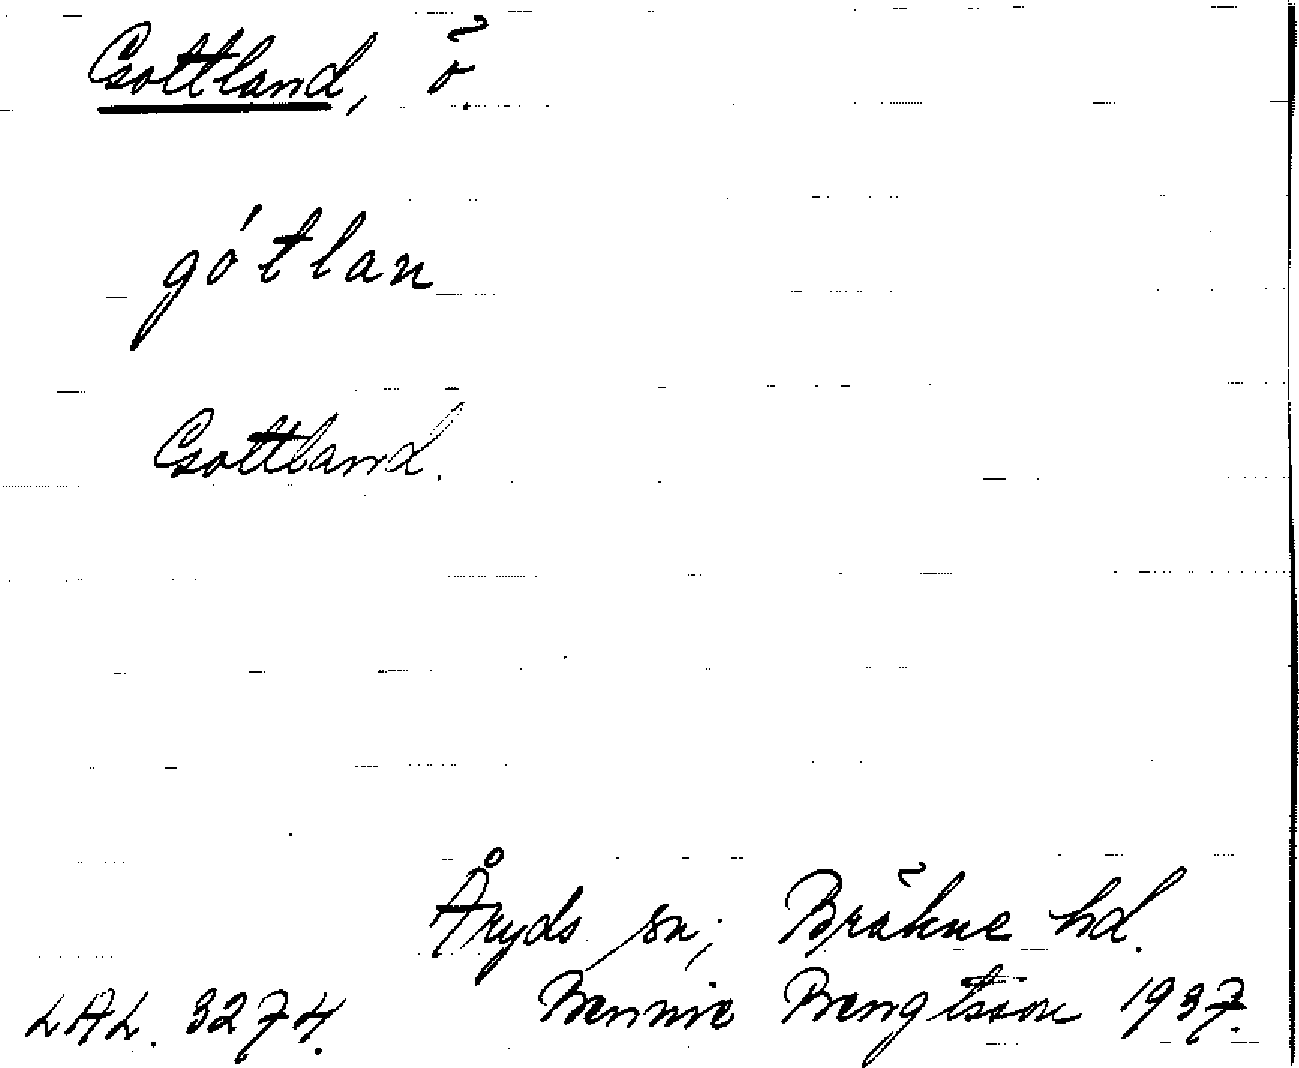 Gottland, ö.
gótlan
Gottland.
Åryds sn; Bräkne hd.
LAL. 3274. Bennie Bengtsson 1937.